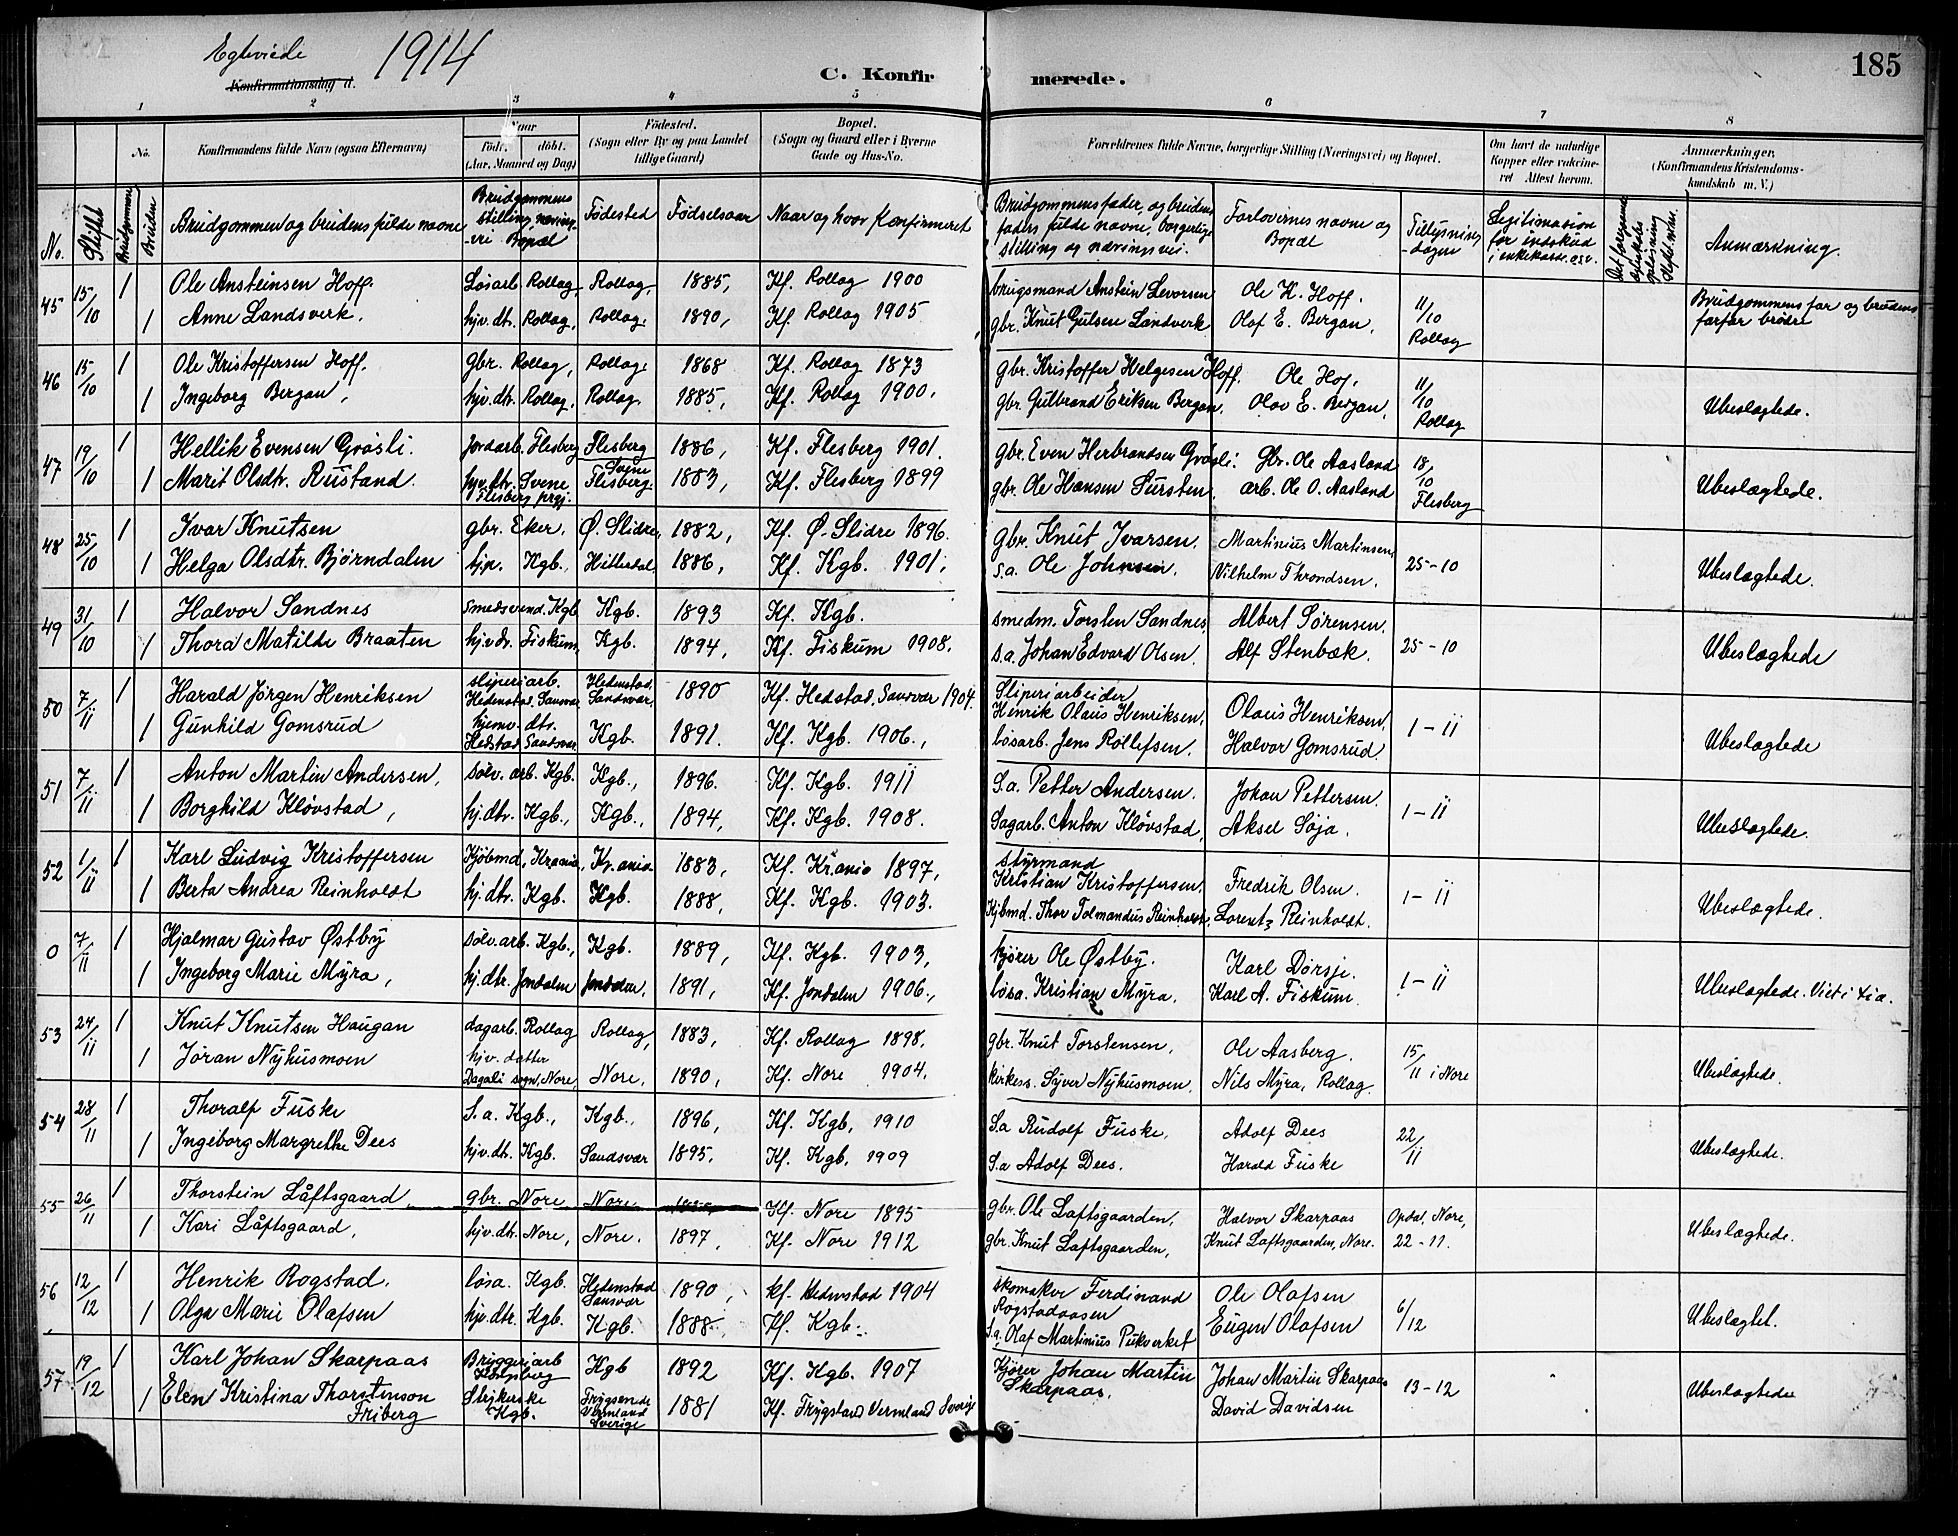 Egteviede 1914
Konfirmationsdag d.
C. Konfirmerede.
185
1 2 3 4 5 6 7 8
No. Konfirmandens fulde Navn (ogsaa Efternavn) Naar født, døbt. (Aar, Maaned og Dag) Fødested. (Sogn eller By og paa Landet tillige Gaard) Bopæl. (Sogn og Gaard eller i Byerne Gade og Hus-No. Forældrenes fulde Navne, borgerlige Stilling (Næringsvei) og Bopæl. Om havt de naturlige Kopper eller vaccineret Attest herom. Anmærkninger. (Konfirmandens Kristendomskundskab m. V.)
No. Stiftet Brudgommen Bruden Brudgommen og brudens fulde navne Brudgommens stilling, næringsvei Bopæl Fødested Fødselsaar Naar og hvor Konfirmeret Brudgommens fader, og brudens faders fulde navne, borgerlige stilling og næringsvei. Forlovernes navne og Bopæl Tillysningsdagen Legitimasion for indskud i enkekasse osv. Anmærkning.
45 15/10 1 Ole Ansteinsen Hoff. Løsarb. Rollag, Rollag, 1885, Kf. Rollag 1900 brugsmand Anstein Levorsen Ole K. Hoff. 11/10 Rollag Brudgommens far og brudens farfar brødre
1 Anne Landsverk, hjv. dtr. Rollag, Rollag. 1890, Kf. Rollag 1905 gbr. Knut Gulsen Landverk Olaf E. Bergan,
46 15/10 1 Ole Kristoffersen Hoff. gbr. Rollag, Rollag. 1868 Kf. Rollag 1873 gbr. Kristoffer Helgesen Hoff. Ole Hof, 11/10 Rollag
1 Ingeborg Bergan, hjv. dtr. Rollag, Rollag. 1885, Kf. Rollag 1900. gbr. Gulbrand Eriksen Bergan. Olav E. Bergan, Ubeslagtede.
47 19/10 1 Hellik Evensen Gråsli. Jordarb. Flesberg Flesberg 1886, Kf. Flesberg 1901. gbr. Even Herbrandsen Gråsli. Gbr. Ole Aasland 18/10 Flesberg
1 Marit Olsdtr. Rustand. hjv. dtr. Svene Flesberg prgj. Svene Flesberg. 1883, Kf. Flesberg 1899 gbr. Ole Hansen Sursten. arb. Ole O. Aasland Ubeslagtede.
48 25/10 1 Ivar Knutsen gbr. Eker. Ø. Slidre, 1882, Kf. Ø. Slidre 1896. gbr. Knut Ivarsen. Martinius Martinsen, 25-10
1 Helga Olsdtr. Bjørndalen hjp. Kgb., Hitterdal. 1886, Kf. Kgb. 1901. s.a. Ole Johnsen. Vilhelm Throndsen. Ubeslagtede.
49 31/10 1 Halvor Sandnes smedsvend. Kgb Kgb. 1893 Kf. Kgb. smedm. Torsten Sandnes, Albert Sørensen. 25-10
1 Thora Matilde Braaten hjv. dr. Fiskum, Kgb. 1894, Kf. Fiskum 1908. s.a. Johan Edvard Olsen. Alf Stenbæk. Ubeslagtede
50 7/11 1 Harald Jørgen Henriksen sliperiarb. Hedenstad. Sansvær Hedenstad. Sandsvær. 1890 Kf. Hedstad, Sansvær 1904. Sliperiarbeider Henrik Olaus Henriksen, Olaus Henriksen. 1-11
1 Gunhild Gomsrud hjemv. dtr. Hedstad Sandsvær Kgb. 1891. Kf. Kgb. 1906., løsarb. Jens Rollefsen. Halvor Gomsrud. Ubeslagtede
51 7/11 1 Anton Martin Andersen, sølv. arb. Kgb. Kgb., 1896. Kf. Kgb. 1911 S.a. Petter Andersen. Johan Pettersen. 1-11
1 Borghild Kløvstad, hj. dtr. Kgb., Kgb., 1894, Kf. Kgb. 1908. Sagarb. Anton Kløvstad, Aksel Søja. Ubeslagtede.
52 1/11 1 Karl Ludvig Kristoffersen Kjøbmd, Kr.ania. Kr.ania. 1883, Kf. Kr.ania 1897, styrmand Kristian Kristoffersen. Fredrik Olsen. 1-11
1 Berta Andrea Reinholdt hj. dtr. Kgb. Kgb. 1888, Kf. Kgb. 1903. Kjbmd. Thor Tolmandus Reinholdt. Lorentz Reinholdt. Ubeslagtede.
0 7/11 1 Hjalmar Gustav Østby sølv. arb. Kgb., Kgb. 1889, Kf. Kgb. 1903, kjører Ole Østby. Karl Dørsje. 1-11
1 Ingeborg Marie Myra, hj. dtr. Jondalen Jondalen. 1891, Kf. Jondalen 1906., løsa. Kristian Myra. Karl A. Fiskum. Ubeslagtede. Viet i
53 24/11 1 Knut Knutsen Haugan dagarb. Rollag Rollag, 1883, Kf. Rollag 1898. gbr. Knut Torstensen. Ole Aasberg. 15/11 i Nore
1 Jøran Nyhusmoen hjv. datter Dagali sogn, Nore, Nore. 1890, Kf. Nore 1904. kirkess. Syver Nyhusmoen. Nils Myra, Rollag. Ubeslagtede.
54 28/11 1 Thoralf Fuske S.a. Kgb., Kgb., 1896, Kf. Kgb. 1910 S.a Rudolf Fuske. Adolf Dees 22/11
1 Ingeborg Margrethe Dees hjv. dtr. Kgb. Sandsvær 1895, Kf. Kgb. 1909 S.a Adolf Dees. Harald Fuske Ubeslagtede.
55 26/11 1 Thorstein Låftsgaard, gbr. Nore, Nore, Kf. Nore 1895 gbr. Ole Laftsgaarden, Halvor Skarpaas Opdal, Nore, 22-11.
1 Kari Låftsgaard, hjv. dtr. Nore, Nore. 1897, Kf. Nore 1912 gbr. Knut Laftsgaarden, Knut Laftsgaarden, Nore. Ubeslægtede.
56 12/12 1 Henrik Rogstad. løsa. Kgb. Hedenstad Sansvær 1890, kf. Hedenstad 1904 skomaker Ferdinand Rogstadaasen Ole Olafsen 6/12
1 Olga Marie Olafsen hjv. dtr. Kgb. Kgb. 1888. Kf. Kgb. S.a. Olaf Martinius Pukverket Eugen Olafsen Ubeslagtet.
57 19/12 1 Karl Johan Skarpaas Bryggeriarb Kongsberg Kgb 1892 Kf. Kgb. 1907 Kjører Johan Martin Skarpaas. Johan Martin Skarpaas 13-12
1 Elen Kristina Thorstinson Friberg Strykerske Kgb. Frygsende Vermland Sverige 1881 Kf. Frygsland Vermland Sverige David Davidsen Ubeslagtede